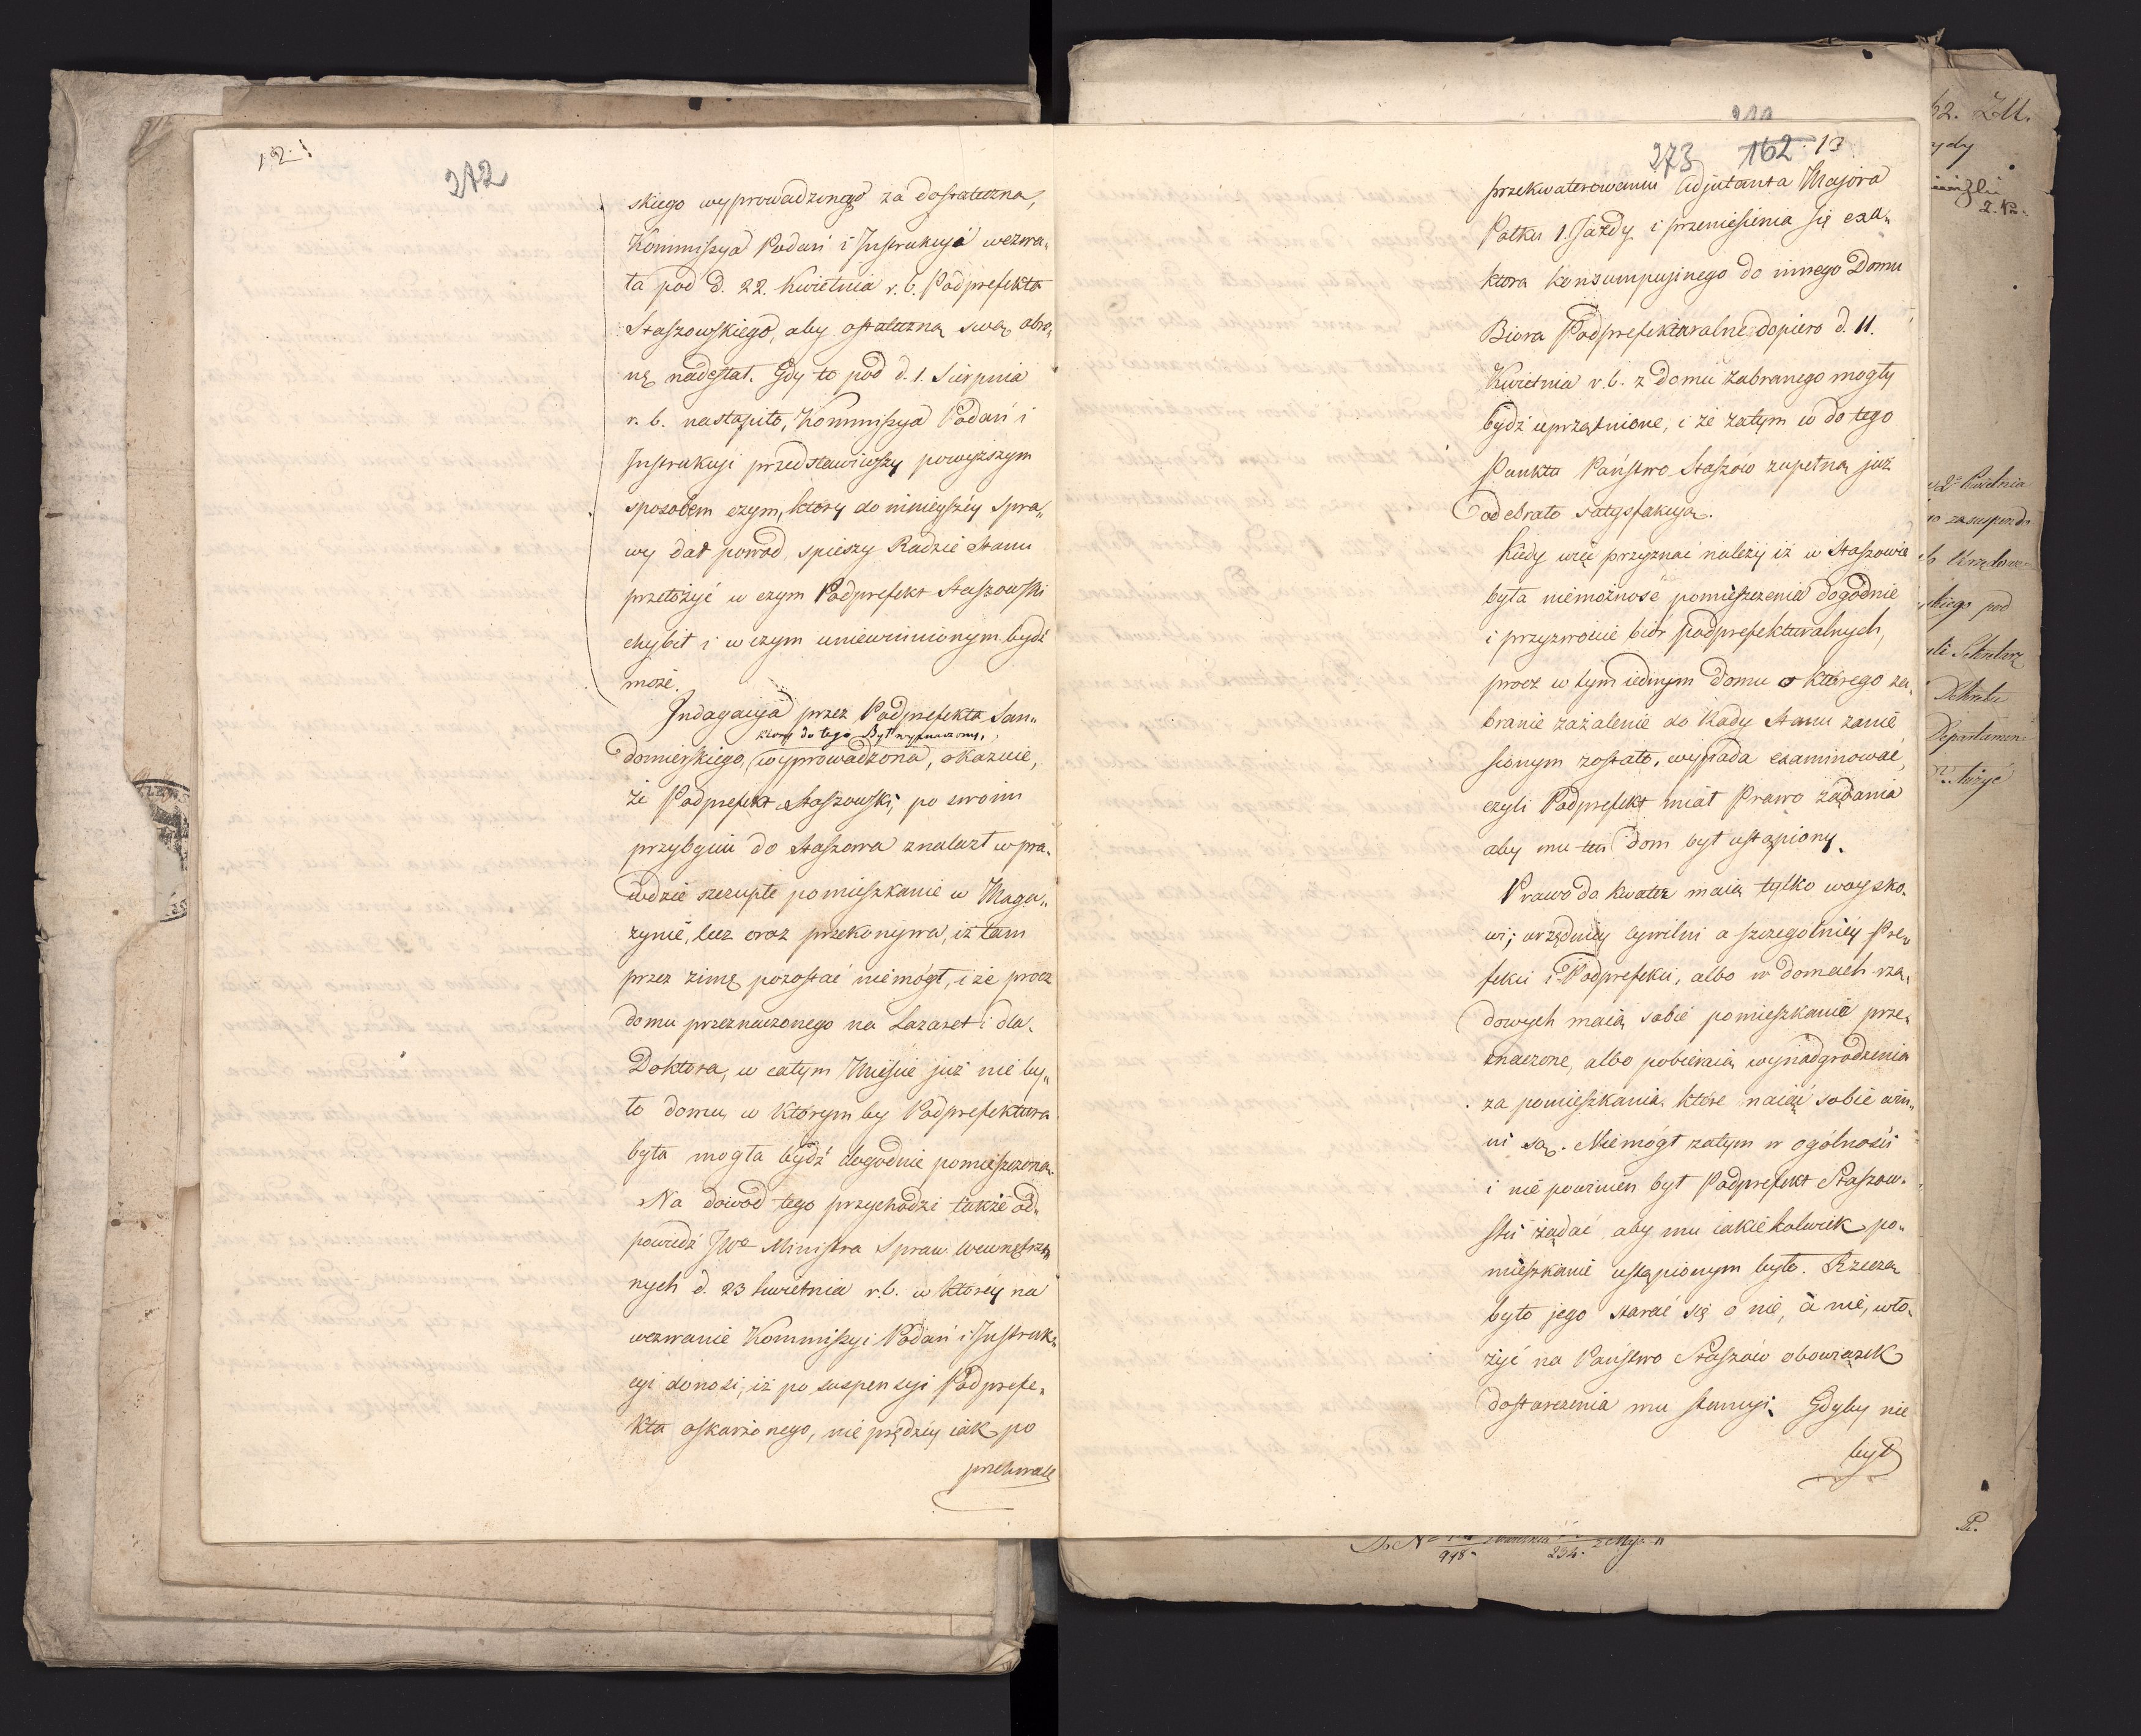 12.
272
skiego wyprowadzonego za dostateczna,
Kommissya Podań i Instrukcyi wezwa„
ła pod d. 22. Kwietnia r. b. Podprefekta
Staszowskiego, aby ostateczną swą obro„
nę nadesłał. Gdy to pod d. 1. Sierpnia
r. b. nastąpiło, Kommissya Podań i
Instrukcyi przedstawiwszy powyższym
sposobem czym, który do ninieyszéy spra„
wy dał powod, spieszy Radzie Stanu
przełożyć w czym Podprefekt Staszowski
chybił i w czym uniewinnionym bydź
może.
Indagacya przez Podprefekta San„
który do tego był wyznaczony,
domierskiego, wyprowadzona, okazuie,
że Podprefekt Staszowski, po swoim
przybyciu do Staszowa znalazł wpra„
wdzie szczupłe pomieszkanie w Maga„
zynie, lecz oraz przekonywa, iż tam
przez zimę pozostać niemógł, i że procz
domu przeznaczonego na Lazaret i dla
Doktora, w całym Mieście już nie by„
ło domu, w którym by Podprefektura
była mogła bydź dogodnie pomieszczona.
Na dowod tego przychodzi także od„
powiedź JWo Ministra Spraw Wewnętrz„
nych d. 23 kwietnia r. b. w któréy na
wezwanie Kommissyi Podań i Instruk„
cyi donosi, iż po suspensyi Podprefe„
kta oskarżonego, nie prędzéy iak po
przekwate
273 162. 13
przekwaterowaniu Adjutanta Majora
Pułku 1. Jazdy i przeniesienia się exa„
ktora konsumpcyjnego do innego Domu
Biora Podprefekturalne dopiero d. 11.
Kwietnia r. b. z domu zabranego mogły
bydź uprzątnione, i że zatym w do tego
Punktu Państwo Staszów zupełną już
odebrało satysfakcyą.
Kiedy więc przyznać należy iż w Staszowie
była niemożność pomieszczenia dogodnie
i przyzwoicie biór podprefekturalnych,
procz w tym iednym domu o którego za„
branie zażalenie do Rady Stanu zanie
sionym zostało, wypada examinować,
czyli Podprefekt miał Prawo żądania
aby mu ten dom był ustąpiony.
Prawo do kwater maią tylko woysko„
wi; urzędnicy cywilni a szczególniéy Pre„
fekci i Podprefekci, albo w domach rzą„
dowych maią sobie pomieszkania prze„
znaczone, albo pobieraią wynadgrodzenia
za pomieszkania które naiąć sobie win„
ni są. Niemógł zatym w ogólności
i nie powinien był Podprefekt Staszow„
ski żądać aby mu iakiekolwiek po„
mieszkanie ustąpionym było. Rzeczą
było jego starać się o nie, a nie, wło„
żyć na Państwo Staszów obowiązek
dostarczenia mu stancyi. Gdyby nie
był
2. Kwietnia
pod
Sekretarz
Dekretu
948.
234.